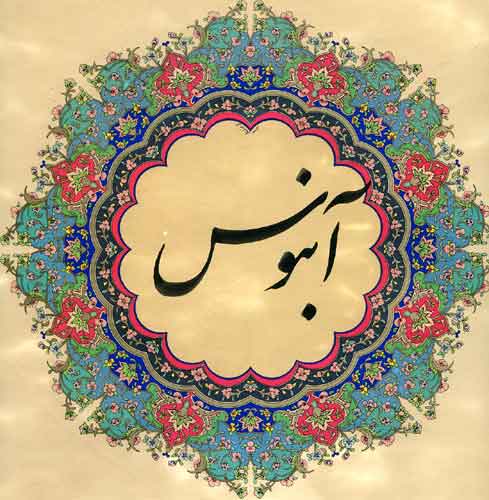 آبنوس